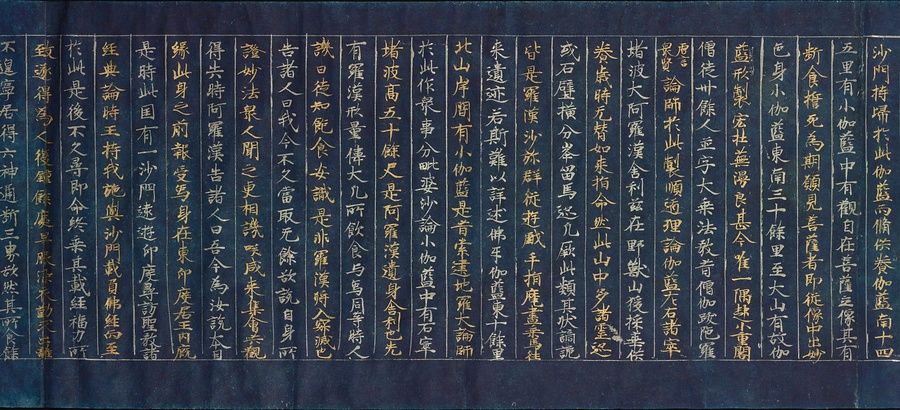 沙門持埽於此伽藍而備供養伽藍南十四
五里有小伽藍中有觀自在菩薩立像其有
斷食擔死為期願見菩薩者即從像中出妙
色身小伽藍東南三十餘里至大山有故伽
藍形製宏壯蕪漫良甚今唯一隅起小重閣
僧徒卅餘人並字大乘法教昔僧伽跋陀羅
唐言眾賢論師於此製順正理論伽藍左右諸窣
堵波大阿羅漢舍利並在野獸山猨採華供
養歲時无替如來指命然此山中多諸靈迹
或石壁橫分峯留馬迹凡厥此類其狀譎詭
皆是羅漢沙弥群從遊戲手指摩畫乘馬往
來遺迹若斯難以詳述佛牙伽藍東十餘里
北山岸間有小伽藍是昔索建地羅大論師
於此作眾事分毗婆沙論小伽藍中有石窣
堵波高五十餘尺是阿羅漢遺身舍利也先
有羅漢形量偉大凡所飲食与象同等時人
譏曰徒知飽食安識是非羅漢將入寂滅也
告諸人曰我今不久當取无餘欲說自身所
證妙法眾人聞之更相譏咲咸來集會共觀
得失時阿羅漢告諸人曰吾今為汝說本因
緣此身之前報受馬身在東印度居王內廐
是時此国有一沙門遠遊印度尋訪聖教諸
經典論時王持我施與沙門載負佛經而至
於此是後不久尋即命終乘其載經福力所
致遂得為人復鍾餘慶早服染衣勤求出離
不遑寧居得六神通斷三界欲然其所食餘